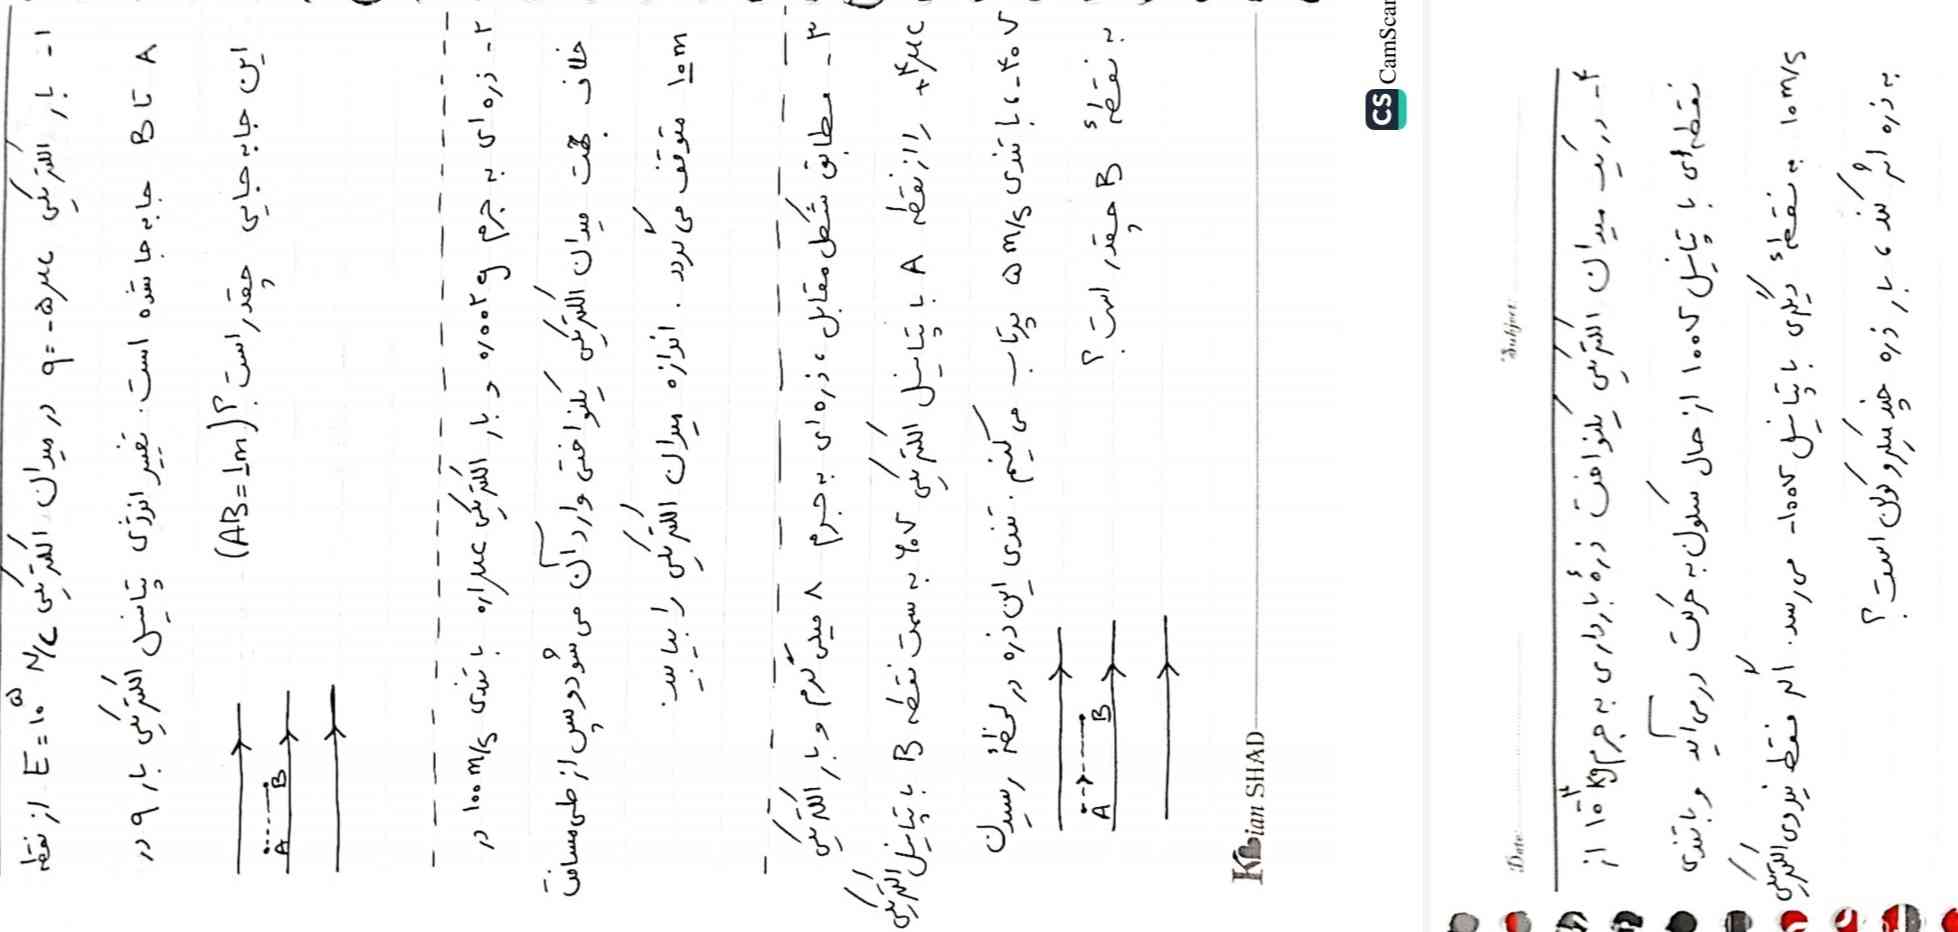 ۱- بار الکتریکی q=-۵μc در میدان الکتریکی E=۱۰^۵ N/C از نقطه
A تا B جابه جا شده است. تغییر انرژی پتانسیل الکتریکی بار q در
این جابه جایی چقدر است؟ (AB=1m)
A B
۲- ذره ای به جرم ۰٫۰۰۲g و بار الکتریکی با تندی ۱۰۰m/s در
خلاف جهت میدان الکتریکی یکنواختی وارد آن می شود و پس از طی مسافت
۱۰m متوقف می گردد. اندازه میدان الکتریکی را بیابید.
۳- مطابق شکل مقابل، ذره ای به جرم ۸ میلی گرم و بار الکتریکی
+۴μc را از نقطه A با پتانسیل الکتریکی به سمت نقطه B با پتانسیل الکتریکی
-۴۰V، با تندی ۵m/s پرتاب می کنیم. تندی این ذره در لحظهٔ رسیدن
به نقطهٔ B چقدر است؟
A B
Kian SHAD
CS CamScan
Subject:
Date:
۴- در یک میدان الکتریکی یکنواخت ذرهٔ بارداری به جرم ۱۰^-۴kg از
نقطه ای با پتانسیل ۱۰۰V از حال سکون به حرکت در می آید و با تندی
۱۰m/s به نقطهٔ دیگری با پتانسیل -۱۰۰V می رسد. اگر فقط نیروی الکتریکی
به ذره اثر کند، بار ذره چند میکروکولن است؟